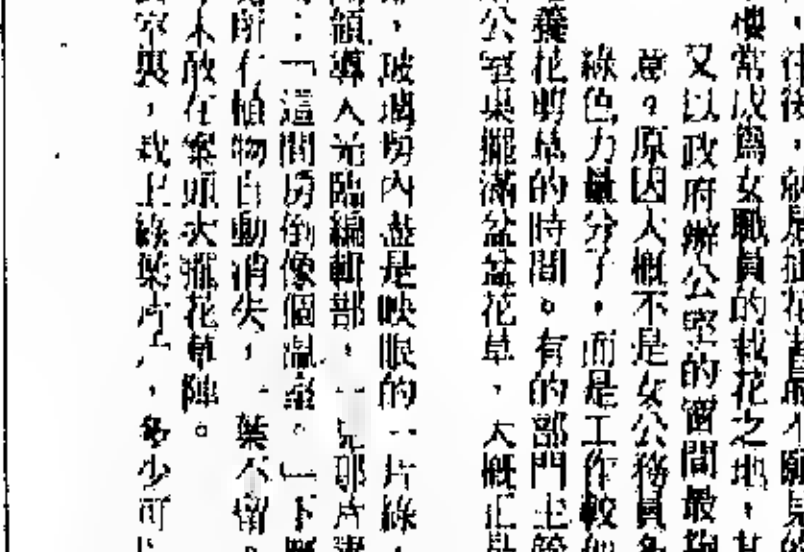 ，往後，就是插花者最不願見的
樓常成爲女職員的栽花之地，其
又以政府辦公室的窗間最
意。原因大概不是女公務員多
綠色力量分子，而是工作較
養花剪草的時間。有的部門主管
公室桌擺滿盆盆花草，大概正是
，玻璃房內盡是映眼的一片綠，
領導人光臨編輯部，一見那片
：「這間房倒像個溫室。」下
所有植物自動消失，一葉不留。
未敢在案頭大擺花草陣。
室與，栽上綠葉片片，多少可